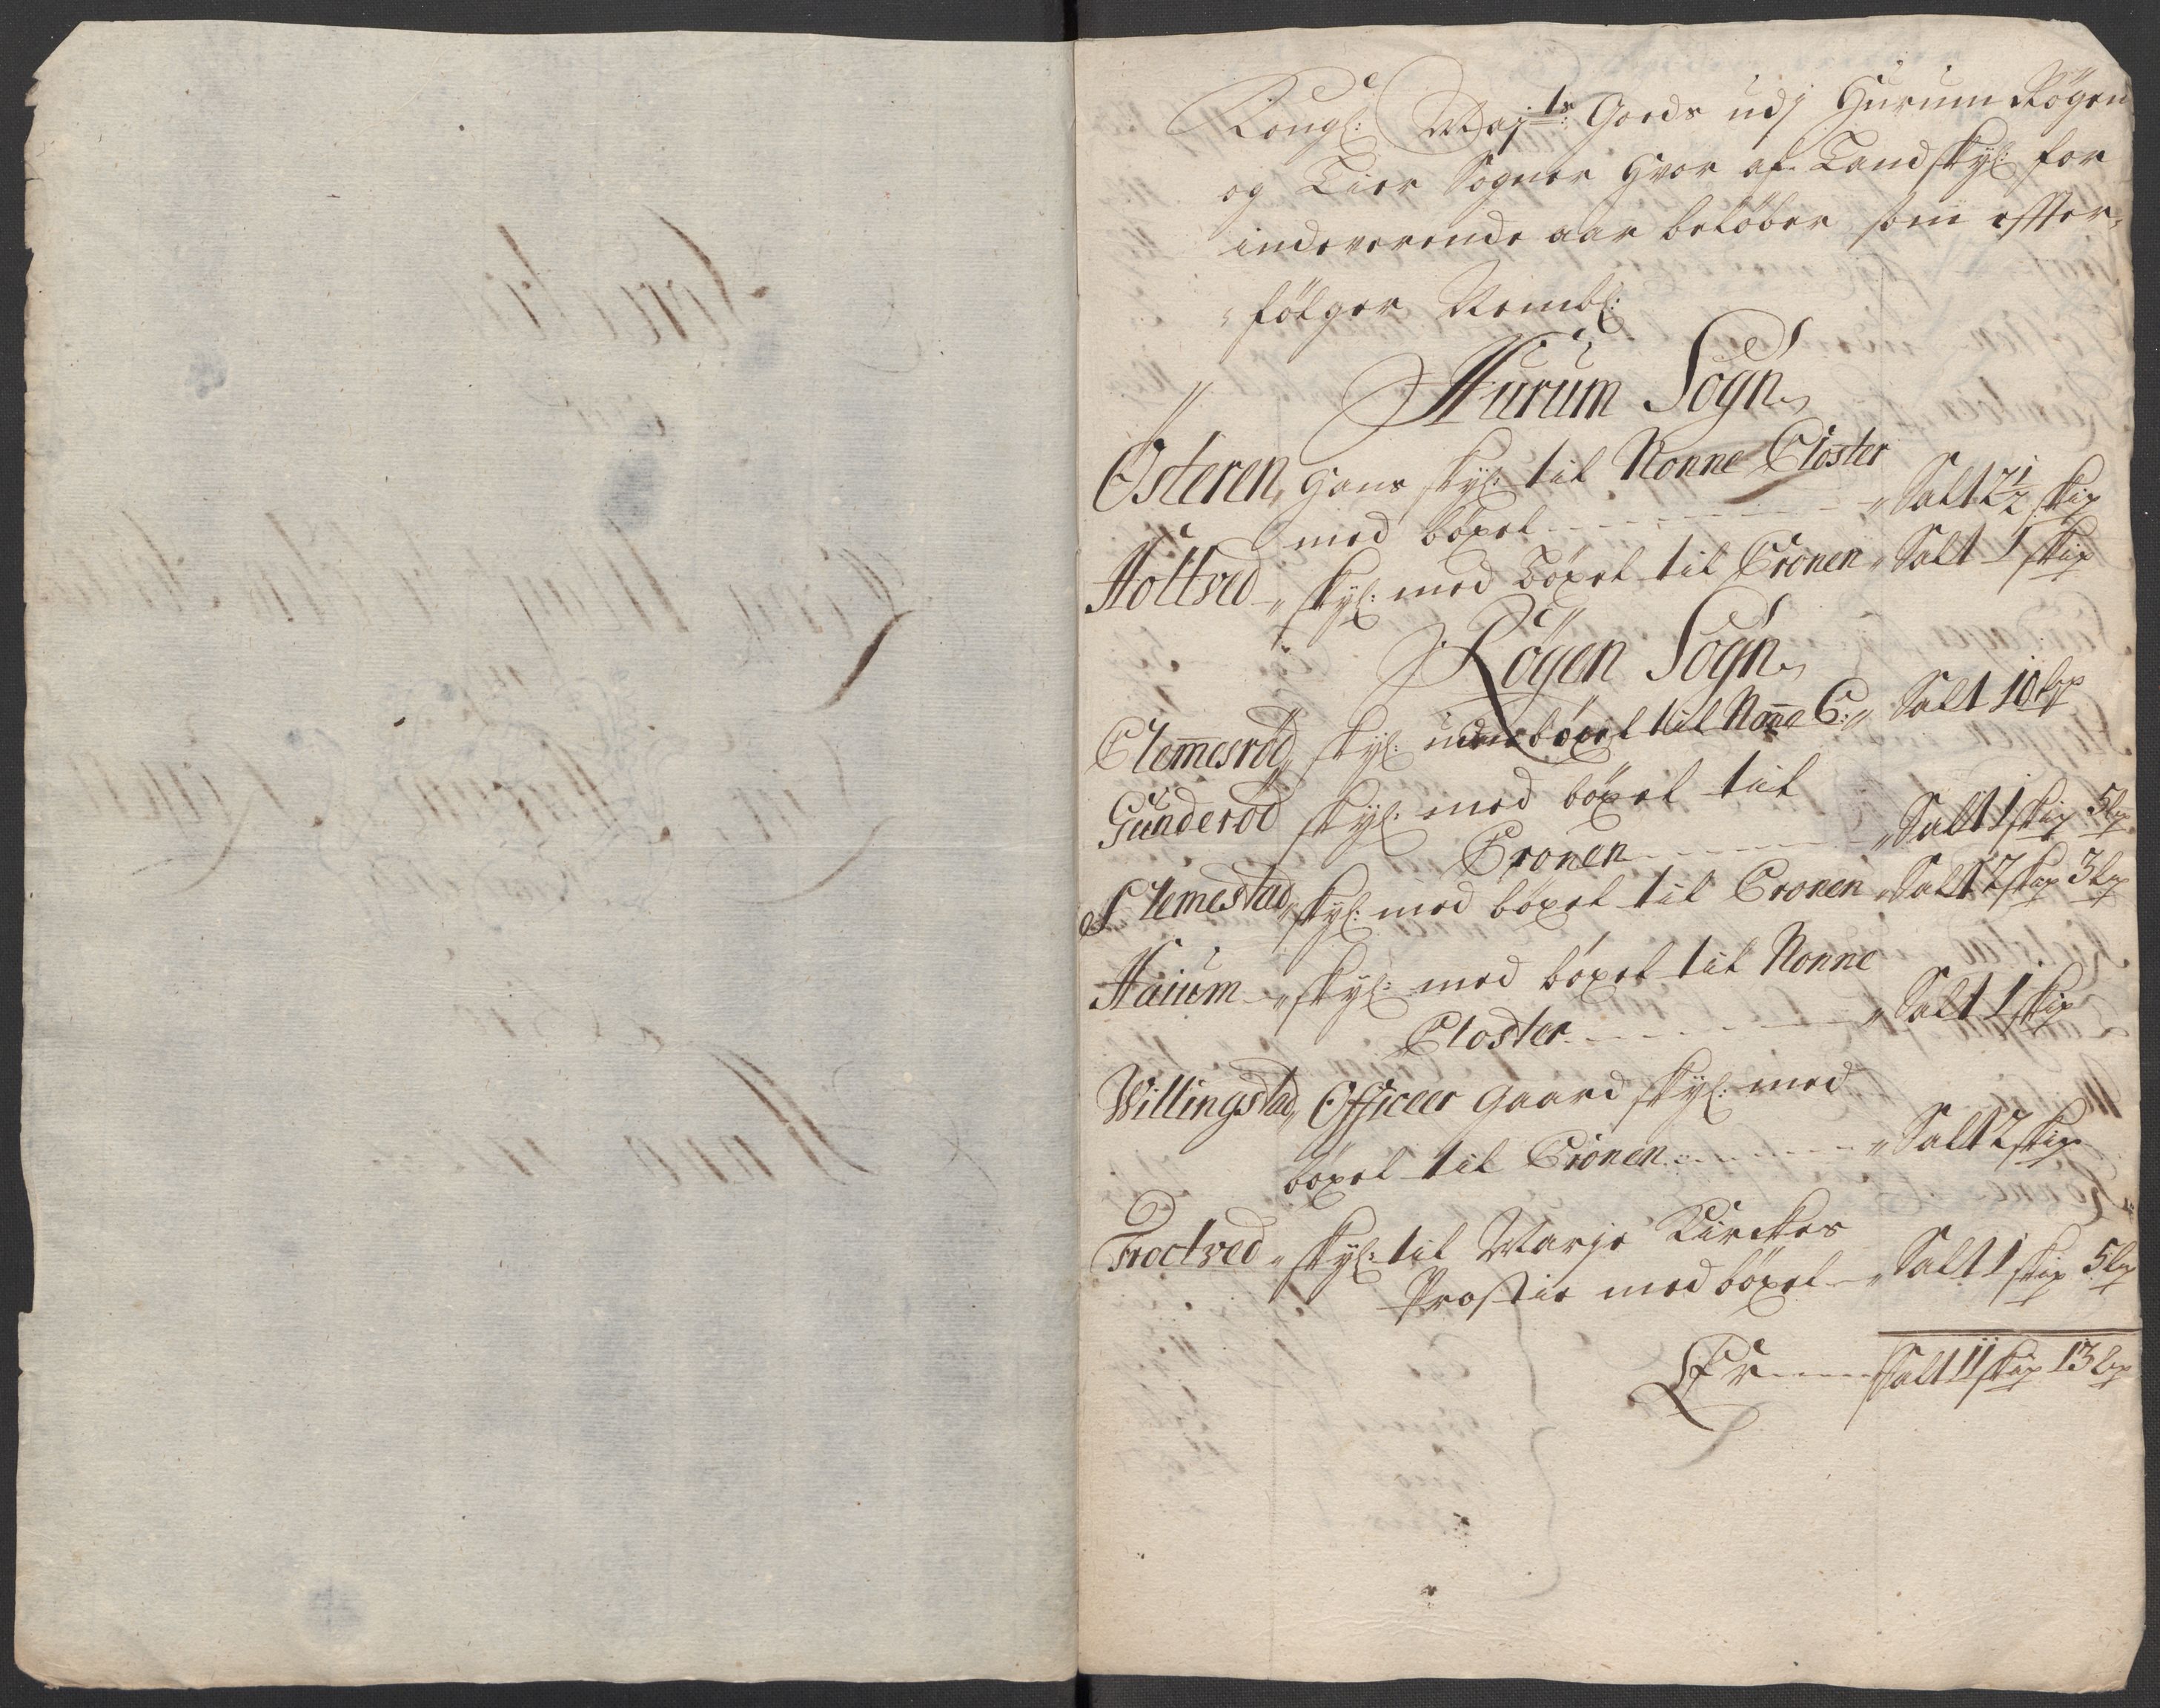 Kongl: Maj:ts: Gods udj Hurum Rögen
og Lier Sogner Hvor af Landskyl: for
indeverende aar beløber som effter-
følger Nembl:
Hurum Sogn
Østeren, Hans skyl: til Nonne Closter
med böxel - - - - - - - - " Salt 2½ skip
Holtved " skyl: med böxel til Cronen " Salt 1 skip
Röyen Sogn
Clemmesröd " skyl: uden böxel til Nonne C: " Salt 10 Lxp
Gunderöd skyl: med böxel til
Cronen - - - - - - " Salt 1 skip 5 Lxp
Slemestad " skyl: med böxel til Cronen " Salt 2 skip 3 Lxp
Haium " skyl: med böxel til Nonne
Closter - - - - - - " Salt 1 skip
Willingstad " Officeer gaard skyl: med
böxel til Cronen - - - - - - " Salt 2 skip
Froctved " skyl: til Marje Kirckes
Prostie med böxel - " Salt 1 skip 5 Lxp
Er - - - - Salt 11 skip 13 Lxp